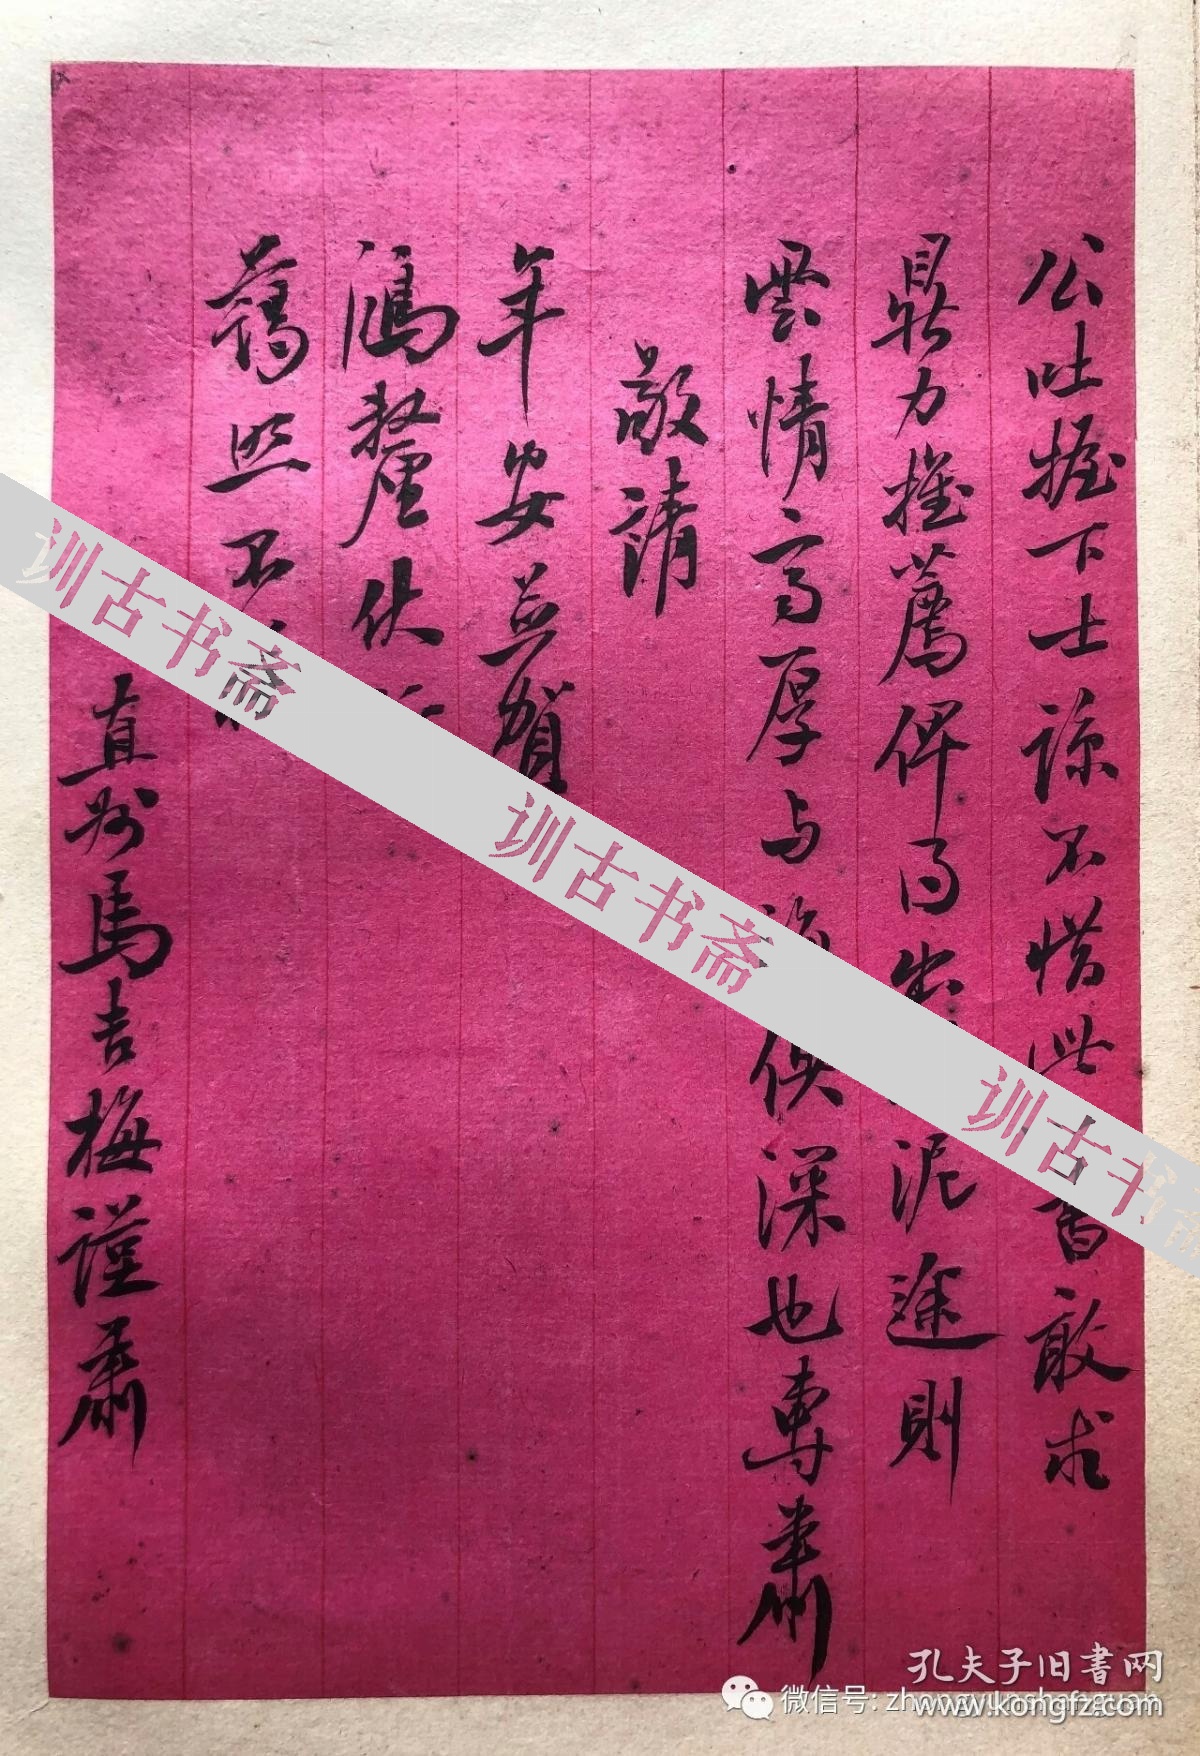 公吐握下士諒不惜此 書敢求
鼎力推薦俾得出 泥途則
雲情高厚与 深也專肅
敬請
年安並賀
鴻釐伏
藹照不
直州馬吉梅謹肅
训古书斋
训古书斋
训古书
孔夫子旧書网
微信号: zhongyunshafzguan
www.kongfz.com